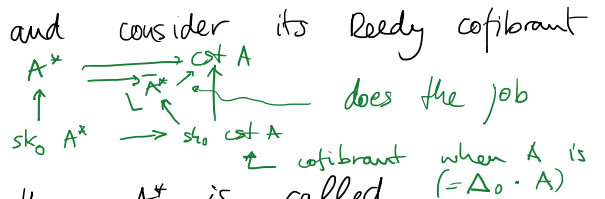 and consider its Reedy cofibrant
A* cst A
L Ā*
does the job
sk₀ A* sk₀ cst A
cofibrant when A is
(= Δ₀ · A)
A* is called